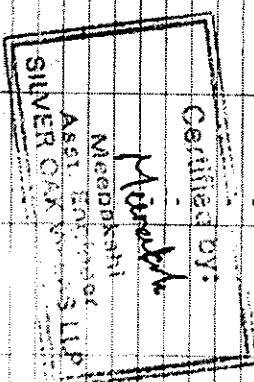 Certified by:
Meenakshi
Meenakshi
Asst. Engineer
SILVER OAK LLP